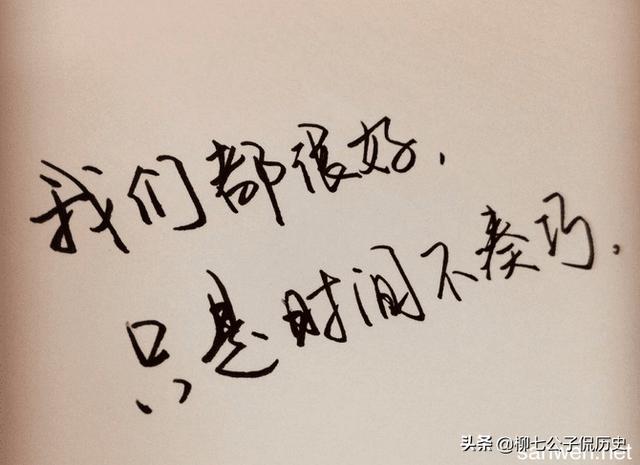 我们都很好，
只是时间不凑巧，
头条 @柳七公子侃历史
sanwen.net